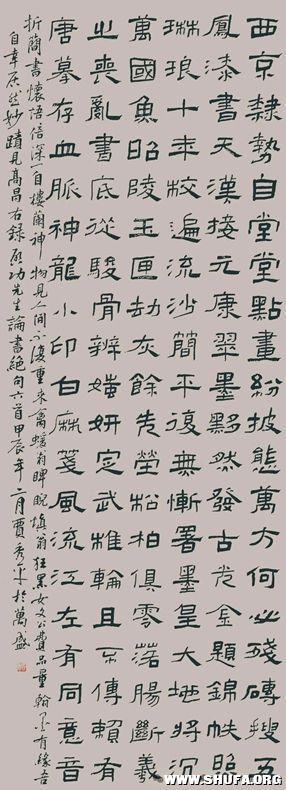 西京隸勢自堂堂點畫紛披態萬方何必殘磚搜五
鳳漆書天漢接元康翠墨黟然發古光金題錦帙照
琳琅十年校遍流沙簡平復無慚署墨皇大地將沉
萬國魚昭陵玉匣劫灰餘先塋松柏俱零落腸斷羲
之喪亂書底從駿骨辨媸妍定武椎輪且不傳賴有
唐摹存血脈神龍小印白麻箋風流江左有同音
折簡書懷語倍深一自樓蘭神物見人間不復重來禽蝯翁睥睨慎翁狂黑女文公費品量翰墨有緣吾
自幸居然妙蹟見高昌右錄啟功先生論書絕句六首甲辰年二月賈秀於萬盛
WWW.SHUFA.ORG